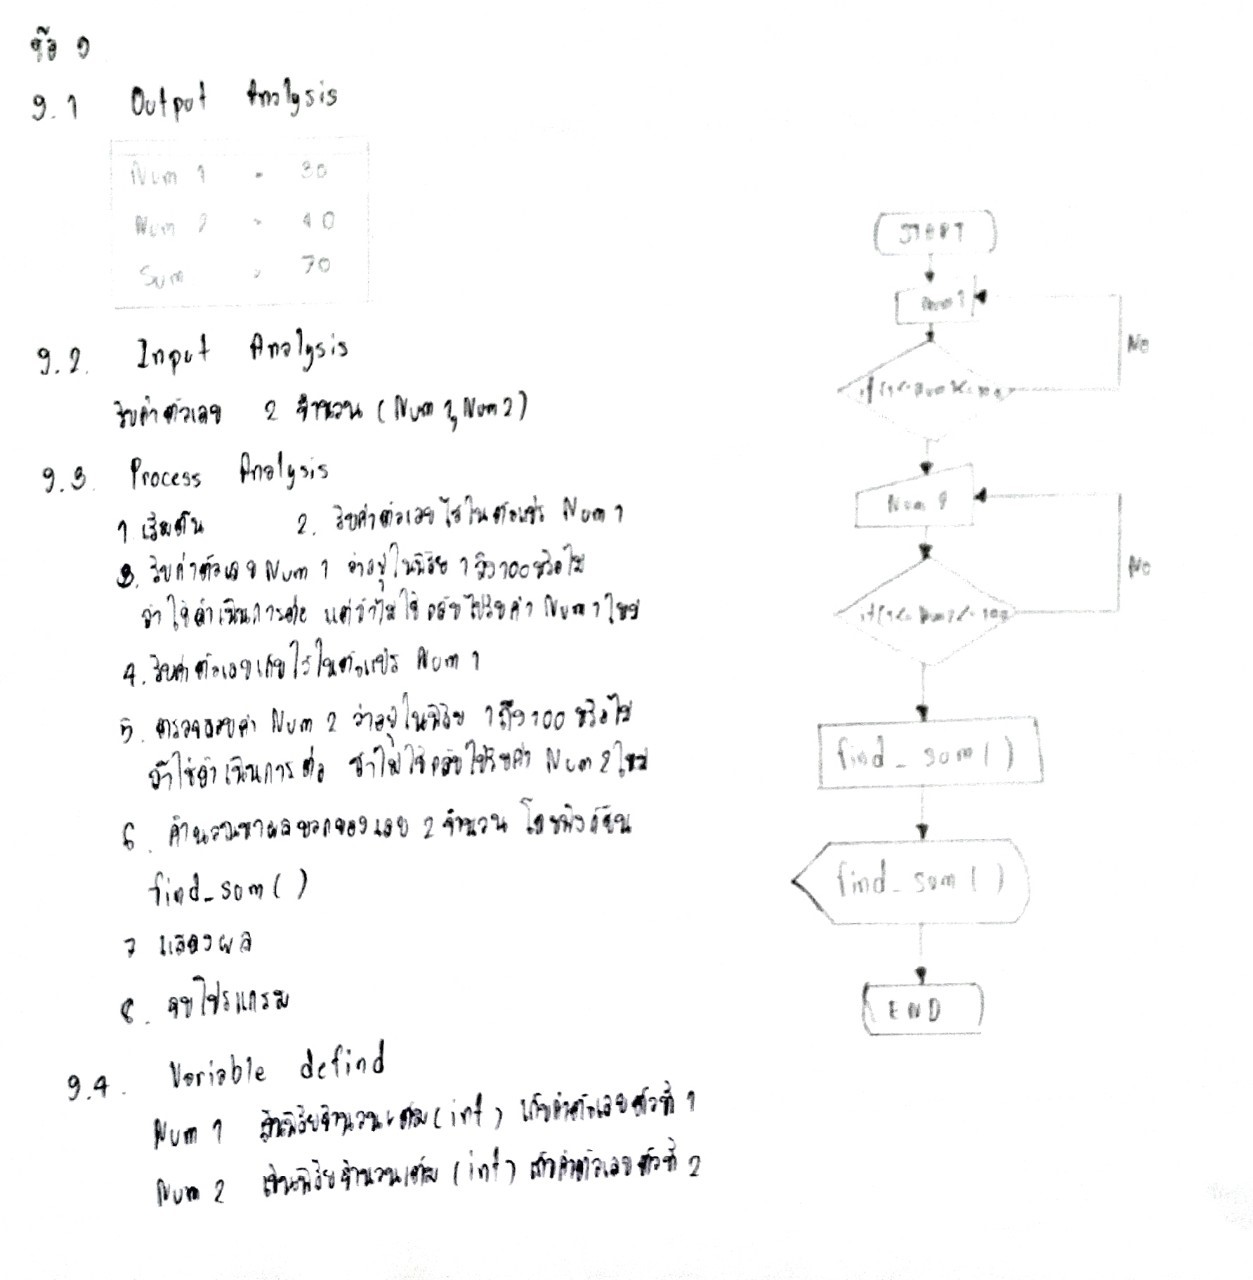 ข้อ 9
9.1 Output Analysis
Num 1 = 30
Num 2 = 40
Sum = 70
9.2. Input Analysis
รับค่าตัวเลข 2 จำนวน (Num 1, Num 2)
9.3. Process Analysis
1 เริ่มต้น 2. รับค่าตัวเลขไว้ในตัวแปร Num 1
3. รับค่าตัวเลข Num 1 ว่าอยู่ในพิสัย 1 ถึง 100 หรือไม่
ถ้าใช่ดำเนินการต่อ แต่ถ้าไม่ใช่ กลับไปรับค่า Num 1 ใหม่
4. รับค่าตัวเลขเก็บไว้ในตัวแปร Num 1
5. ตรวจสอบค่า Num 2 ว่าอยู่ในพิสัย 1 ถึง 100 หรือไม่
ถ้าใช่ดำเนินการต่อ ถ้าไม่ใช่กลับไปรับค่า Num 2 ใหม่
6. คำนวณหาผลบวกของเลข 2 จำนวน โดยฟังก์ชัน
find_sum()
7 แสดงผล
8. จบโปรแกรม
9.4. Variable defind
Num 1 เป็นพิสัยจำนวนเต็ม (int) เก็บค่าตัวเลขตัวที่ 1
Num 2 เป็นพิสัยจำนวนเต็ม (int) เก็บค่าตัวเลขตัวที่ 2
START
Num 1
No
Num 2
No
find_sum()
find_sum()
END